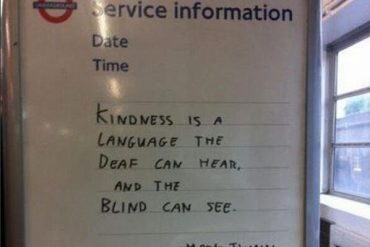 UNDERGROUND
Service information
Date
Time
KINDNESS IS A
LANGUAGE THE
DEAF CAN HEAR,
AND THE
BLIND CAN SEE.